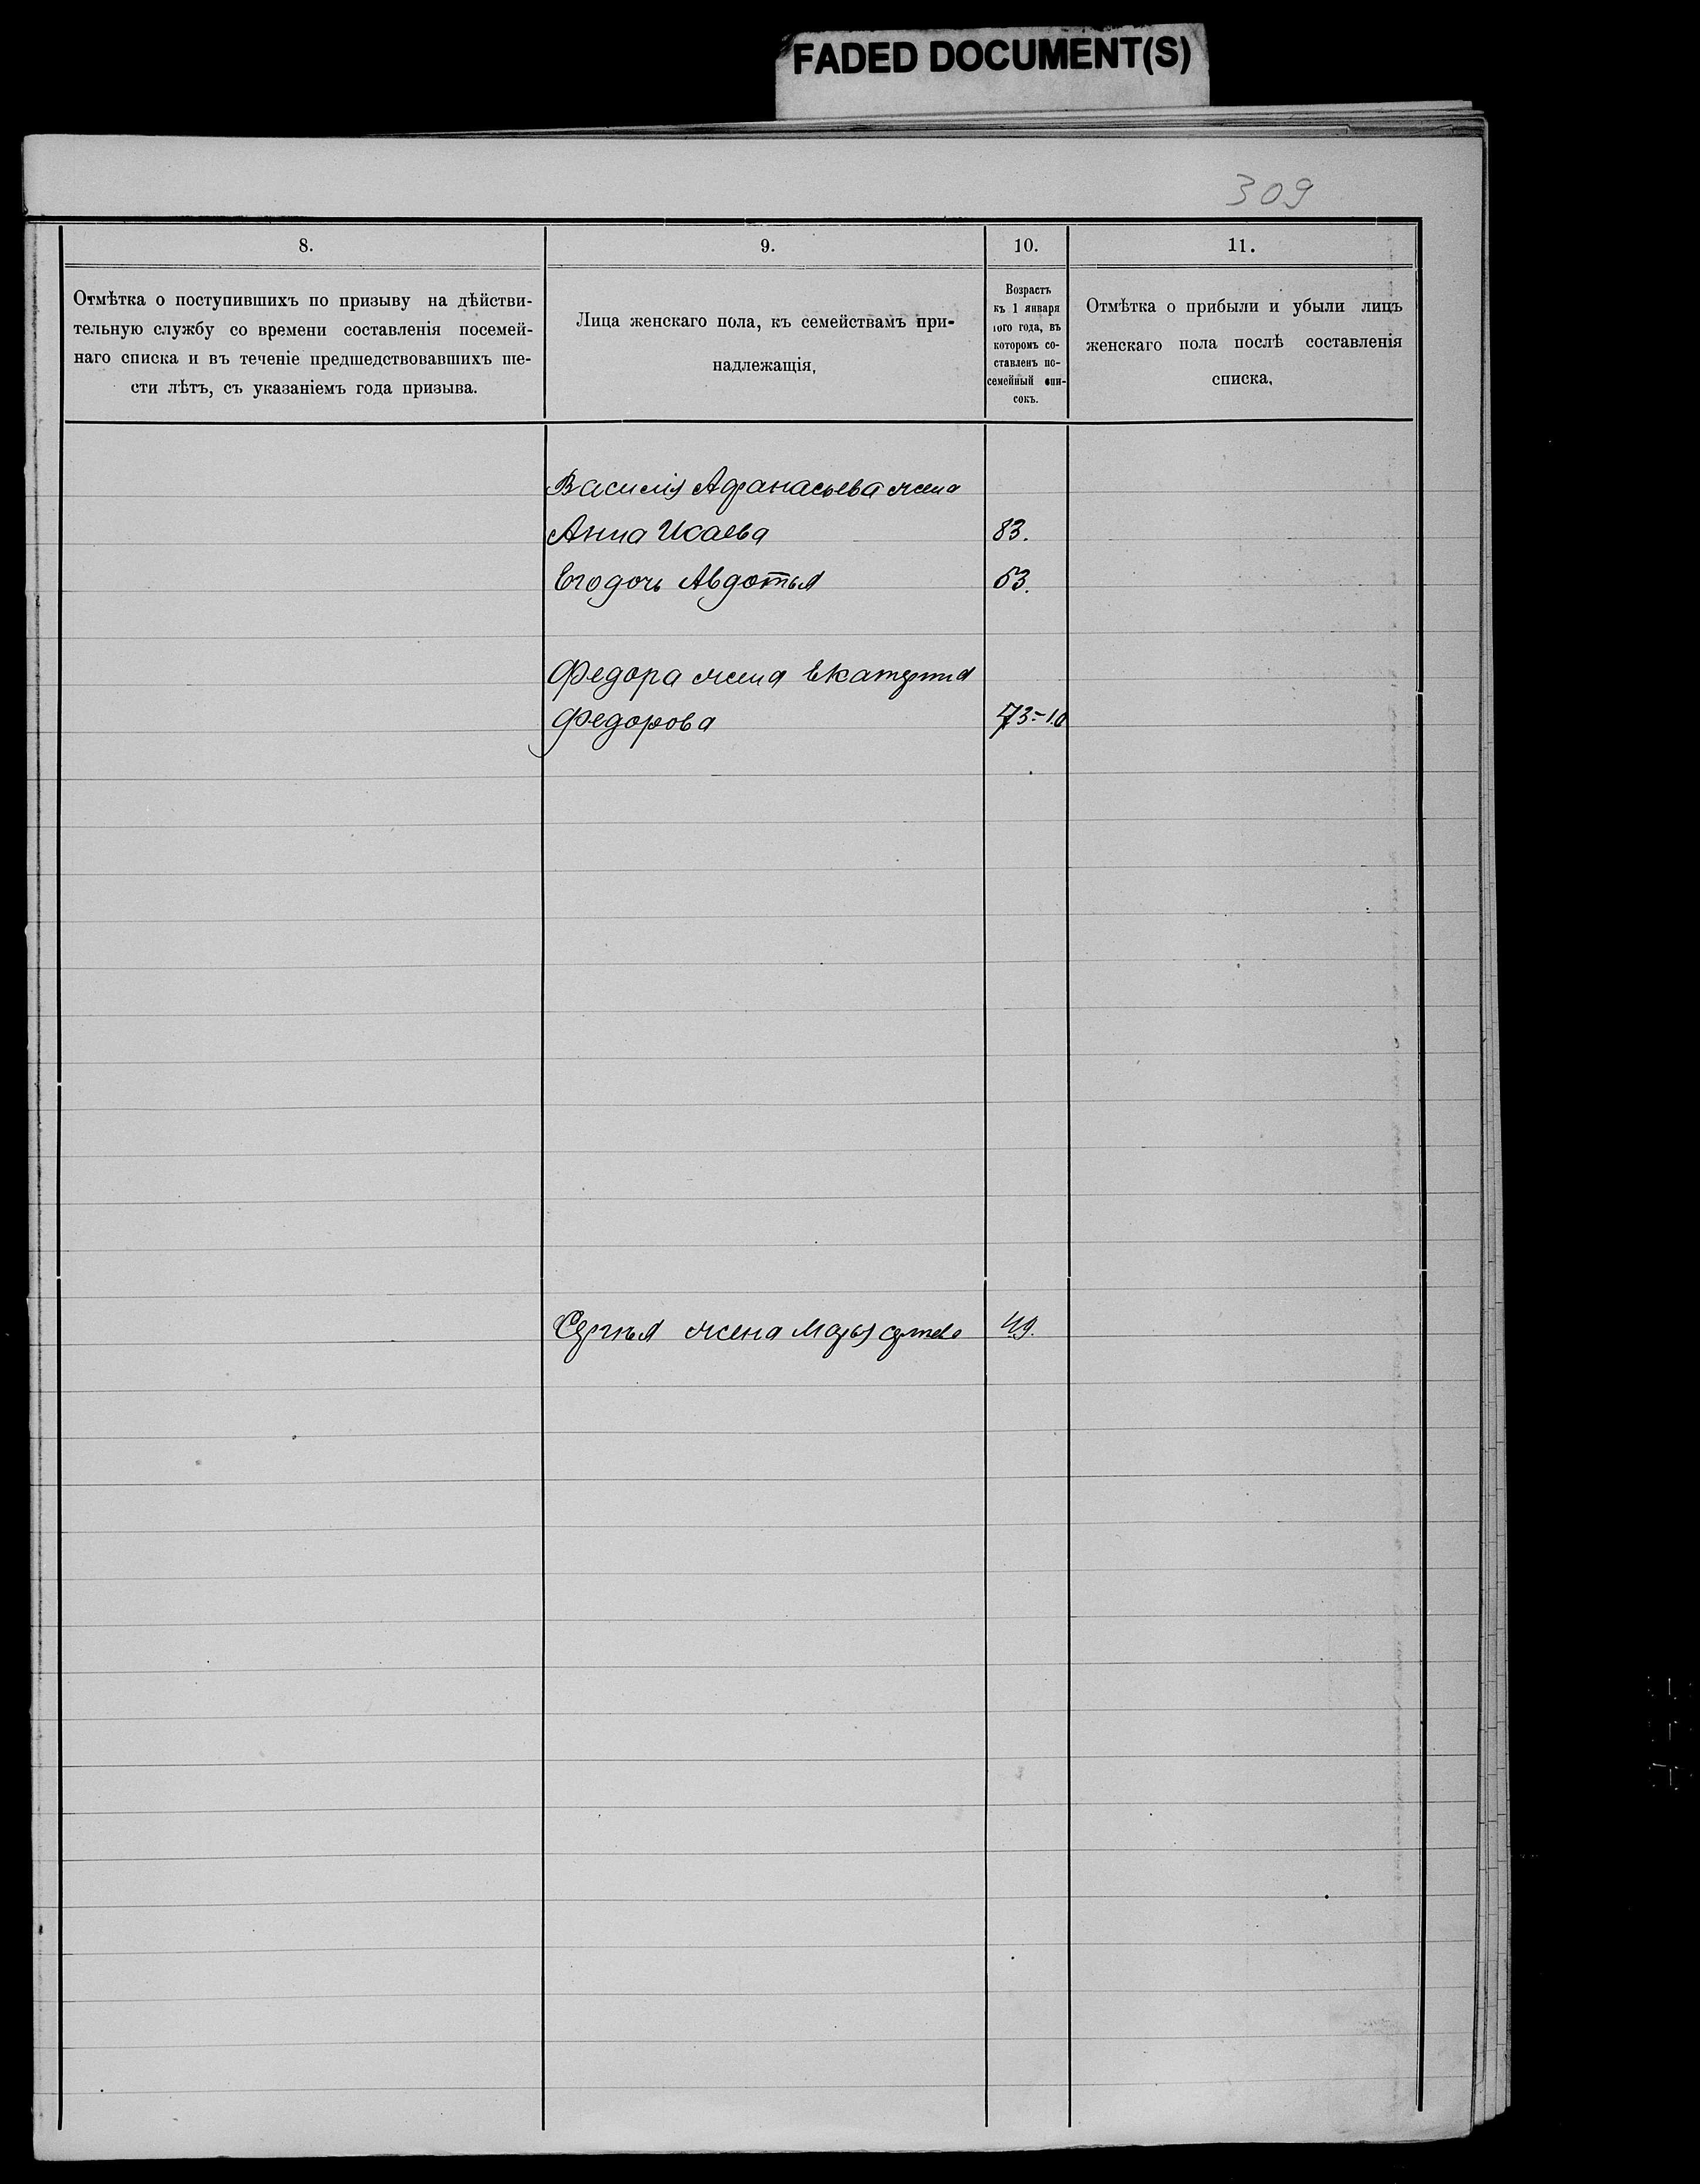 FADED DOCUMENT(S)
309
8.
9.
10.
11.
Отмѣтка о поступившихъ по призыву на дѣйстви-
тельную службу со времени составленія посемей-
наго списка и въ теченіе предшедствовавшихъ ше-
сти лѣтъ, съ указаніемъ года призыва.
Лица женскаго пола, къ семействамъ при-
надлежащія,
Возрастъ
къ 1 января
того года, въ
которомъ со-
ставленъ по-
семейный спи-
сокъ.
Отмѣтка о прибыли и убыли лицъ
женскаго пола послѣ составленія
списка,
Василія Афанасьева жена
Анна Исаева 83.
Его дочь Авдотья 53.
Федора жена Екатерина
Федорова 73-10
Сергѣя жена Марья 49.